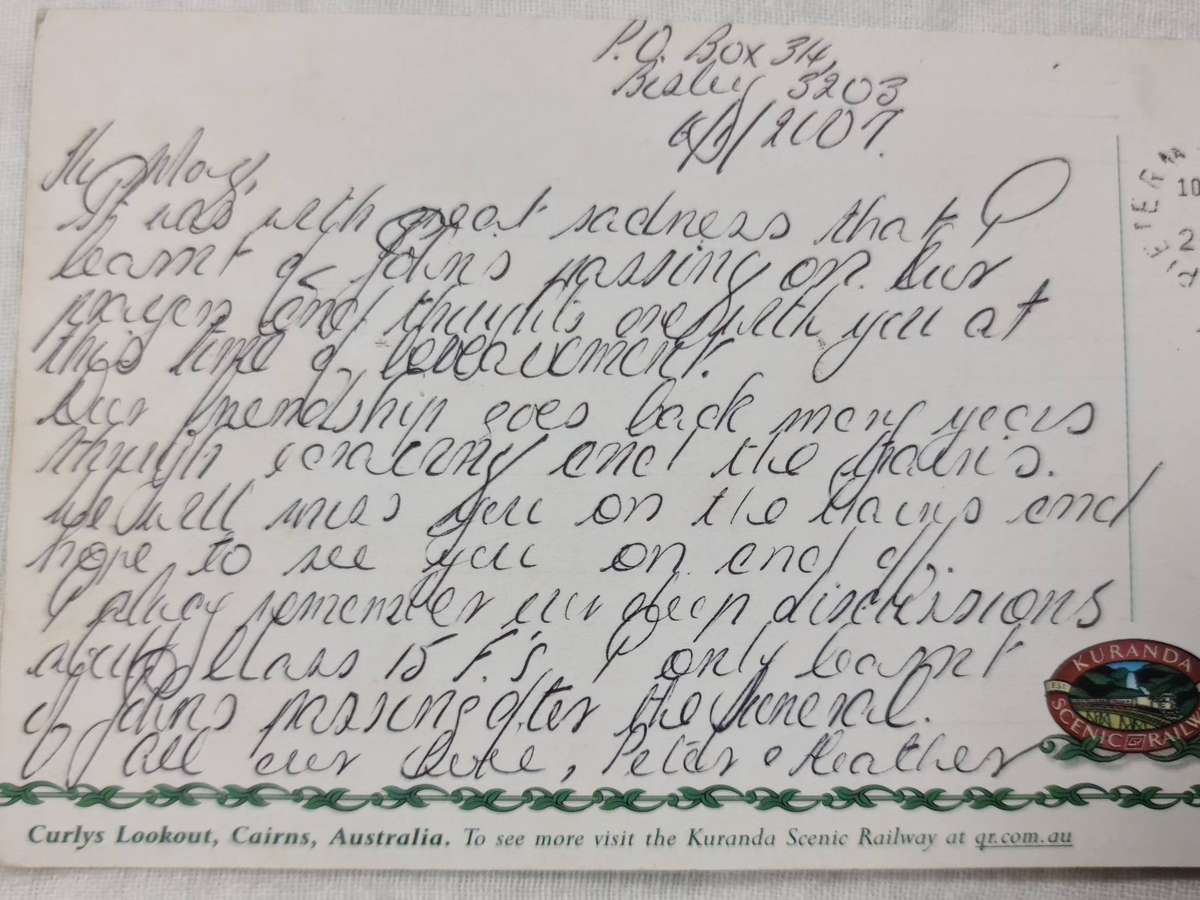 P.O. Box 314,
Bisley 3203
6/1/2007.
Hi May,
It was with great sadness that I
learnt of John's passing on. Our
prayers and thoughts are with you at
this time of bereavement.
Our friendship goes back many years
through and the trains.
We will miss you on the trains and
hope to see you on and off.
I always remember our deep discussions
about Class 15 F.'s, I only learnt
of John's passing after the funeral.
All our love, Peter & Heather
PIETERMA
10
2
KURANDA
EST
SCENIC QR RAIL
Curlys Lookout, Cairns, Australia. To see more visit the Kuranda Scenic Railway at qr.com.au